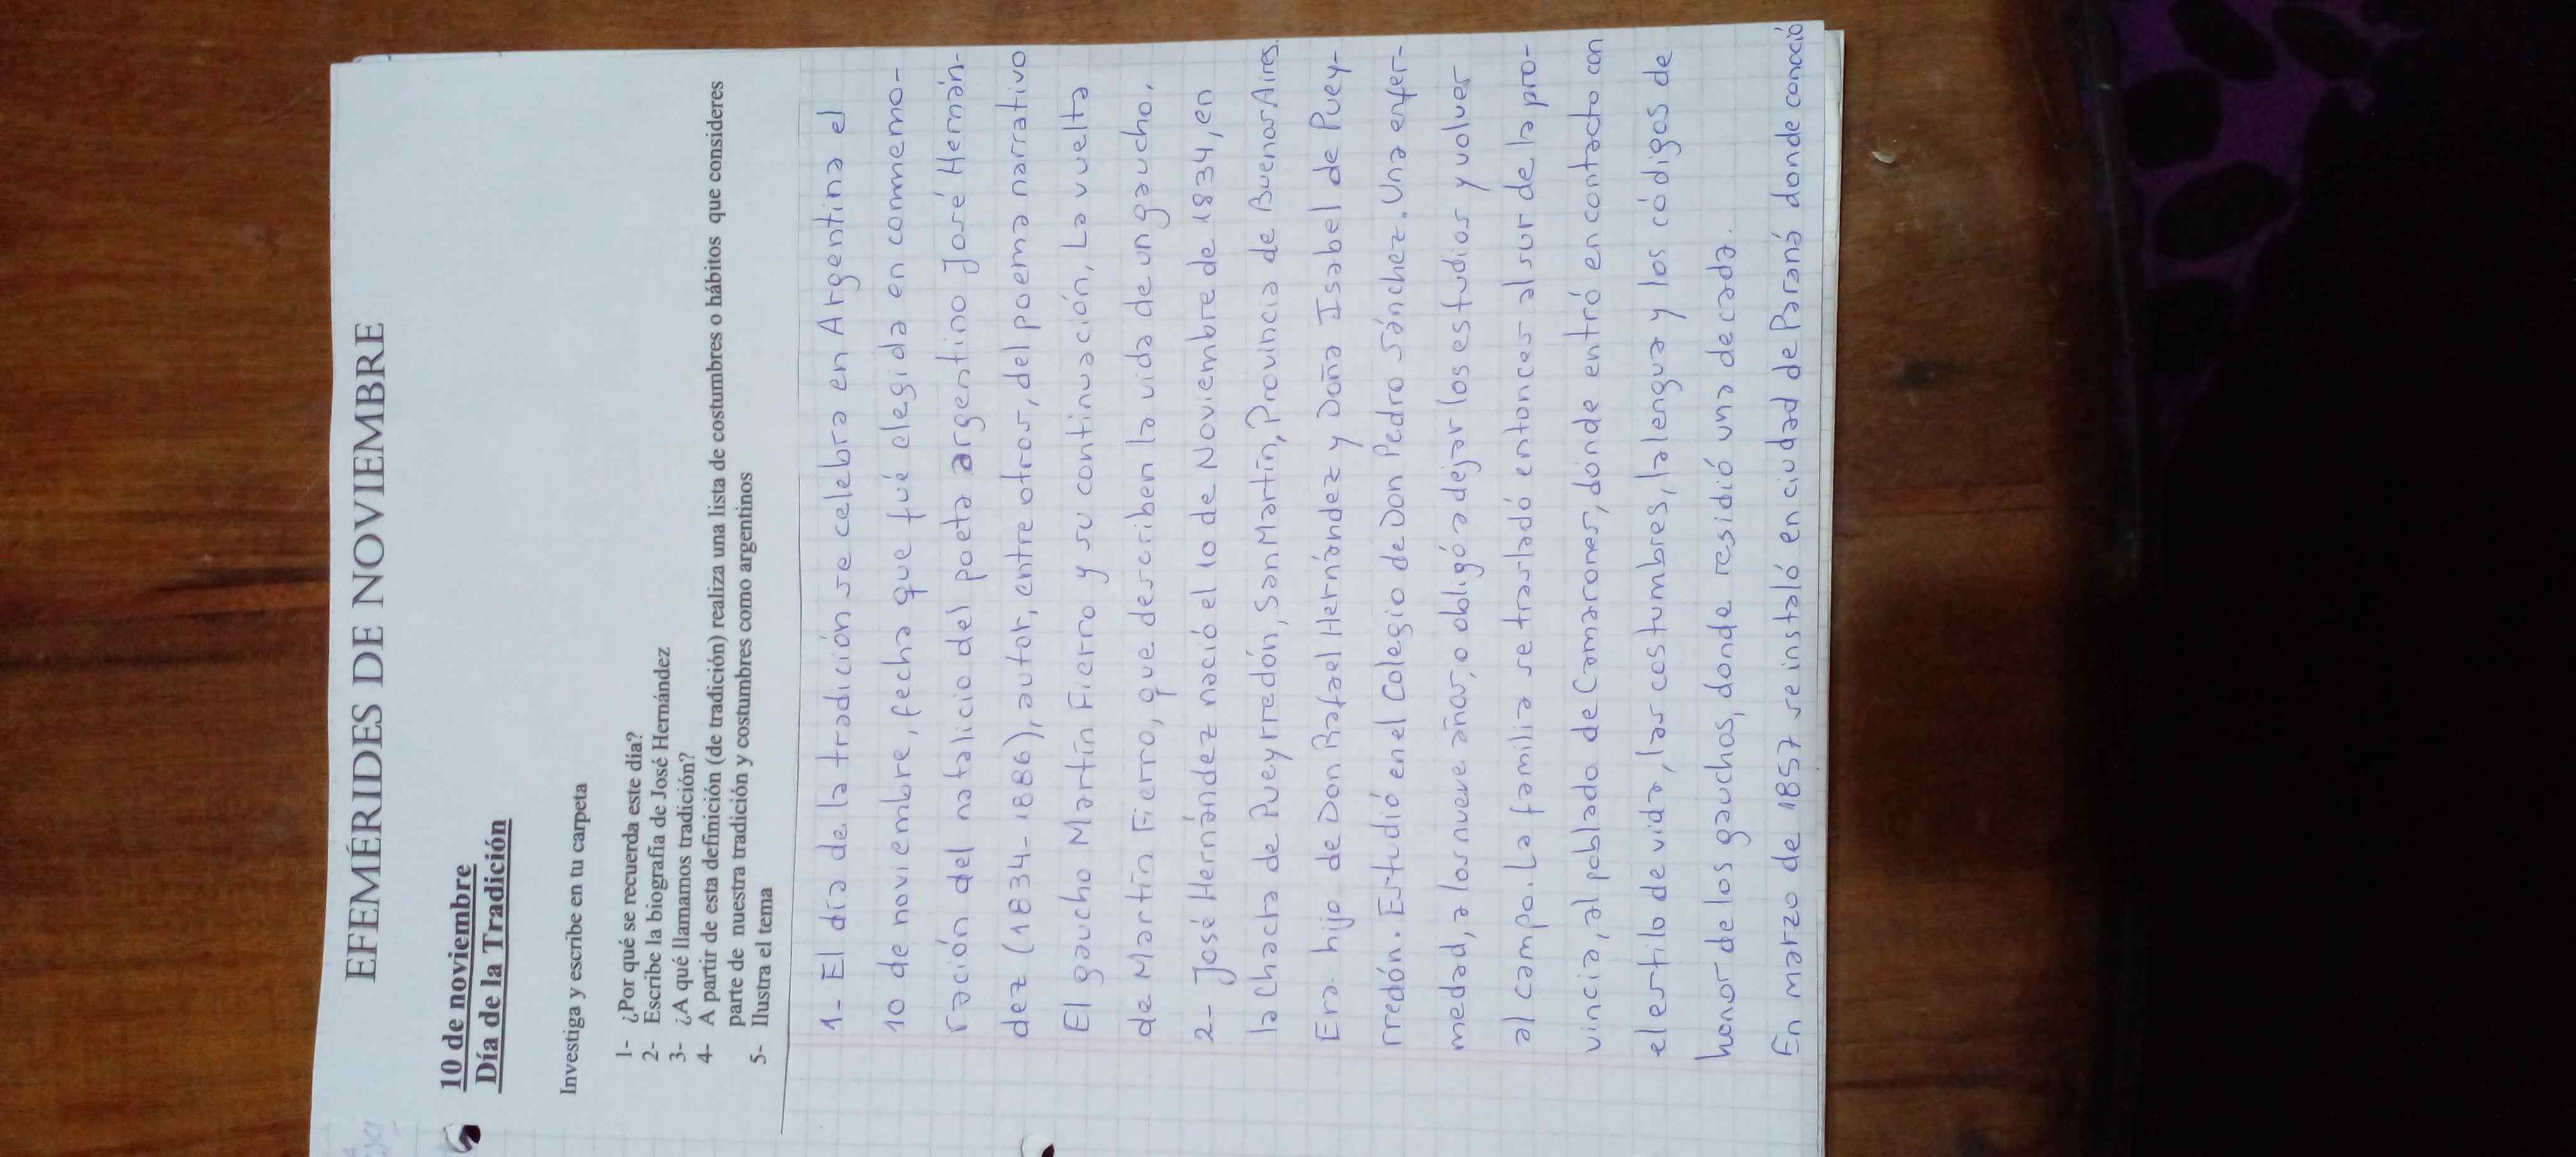 EFEMÉRIDES DE NOVIEMBRE
10 de noviembre
Día de la Tradición
Investiga y escribe en tu carpeta
1- ¿Por qué se recuerda este día?
2- Escribe la biografía de José Hernández
3- ¿A qué llamamos tradición?
4- A partir de esta definición (de tradición) realiza una lista de costumbres o hábitos que consideres
parte de nuestra tradición y costumbres como argentinos
5- Ilustra el tema
1- El día de la tradición se celebra en Argentina el
10 de noviembre, fecha que fué elegida en conmemo-
ración del natalicio del poeta argentino José Hernán-
dez (1834-1886), autor, entre otros, del poema narrativo
El gaucho Martín Fierro y su continuación, La vuelta
de Martín Fierro, que describen la vida de un gaucho.
2- José Hernández nació el 10 de Noviembre de 1834, en
la Chacra de Pueyrredón, San Martín, Provincia de Buenos Aires.
Era hijo de Don Rafael Hernández y Doña Isabel de Puey-
rredón. Estudió en el Colegio de Don Pedro Sánchez. Una enfer-
medad, a los nueve años, o obligó a dejar los estudios y volver
al campo. La familia se trasladó entonces al sur de la pro-
vincia, al poblado de Camarones, dónde entró en contacto con
el estilo de vida, las costumbres, la lengua y los códigos de
honor de los gauchos, donde residió una decada.
En marzo de 1857 se instaló en ciudad de Paraná donde conoció